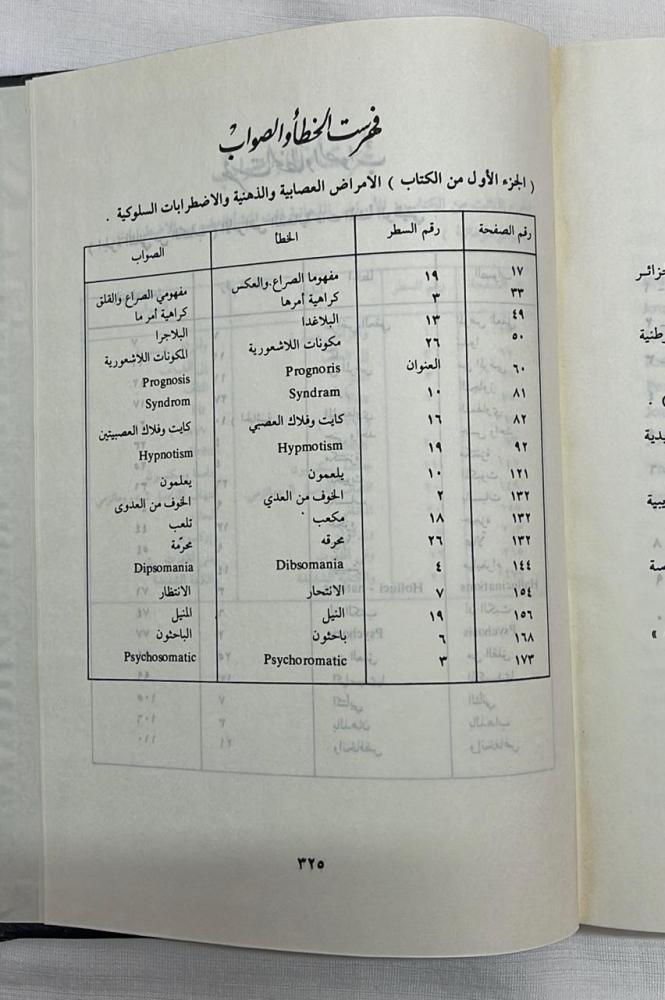 فهرست الخطأ والصواب
( الجزء الأول من الكتاب ) الامراض العصابية والذهنية والاضطرابات السلوكية .
رقم الصفحة رقم السطر الخطأ الصواب
١٧ ١٩ مفهوما الصراع.والعكس مفهومي الصراع والقلق
٣٣ ٣ كراهية أمرها كراهية أمر ما
٤٩ ١٣ البلاغدا البلاجرا
٥٠ ٢٦ مكونات اللاشعورية المكونات اللاشعورية
٦٠ العنوان Prognoris Prognosis
٨١ ١٠ Syndram Syndrom
٨٢ ١٦ كايت وفلاك العصبي كايت وفلاك العصبيتين
٩٢ ١٩ Hypmotism Hypnotism
١٢١ ١٠ يلعمون يعلمون
١٣٢ ٢ الخوف من العدي الخوف من العدوى
١٣٢ ١٨ مكعب تلعب
١٣٢ ٢٦ محرقه محرّمة
١٤٤ ٤ Dibsomania Dipsomania
١٥٤ ٧ الانتحار الانتظار
١٥٦ ١٩ النيل المنيل
١٦٨ ٦ باحثون الباحثون
١٧٣ ٣ Psychoromatic Psychosomatic
٣٢٥